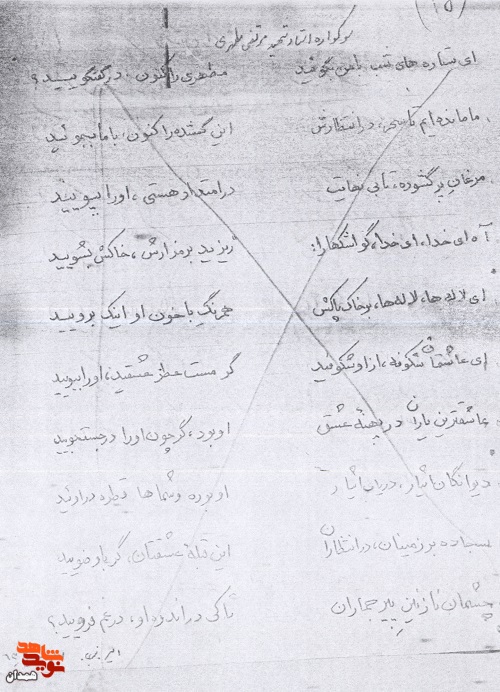 (۱۵)
سوگواره استاد شهید مرتضی مطهری
ای ستاره های شب با من بگوئید مطهری را کنون در
ما مانده ایم تا سحر، در انتظارش این گمشده را کنون، با ما بیموئید
مرغان پر گشوده، تا بی نهایت در امتداد هستی، او را بپوئید
آه ای خدا، ای خدا، گو اشکها را: ریزید بر مزارش، خاکش بشوئید
ای لاله ها، لاله ها، بر خاک پاکش همرنگ با خون او اینک بروئید
ای عاشقان شکوفه، از او شکوفید گر مست عطر عشقید، او را ببوئید
عاشقترین یاران در پهنهٔ عشق او بود، گر چون او را در جستجوئید
دیوانگان ایثار، دریای ایثار او بوده و شماها قطره در اوئید
سجاده بر زمینان، در انتظاران این قبلهٔ عشقتان، گر با وضوئید
چشمان نازنین پیر جماران تا کی در اندوه او، در غم فروئید؟
نوید شاهد
همدان